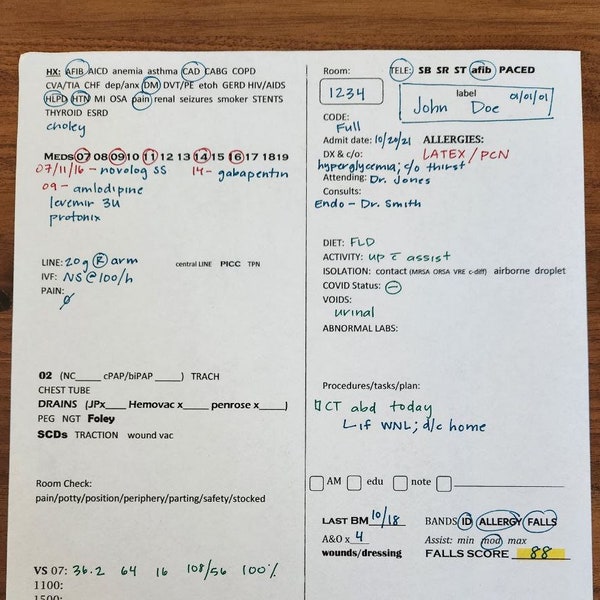 HX: AFIB AICD anemia asthma CAD CABG COPD
CVA/TIA CHF dep/anx DM DVT/PE etoh GERD HIV/AIDS
HLPD HTN MI OSA pain renal seizures smoker STENTS
THYROID ESRD
choley
MEDS 07 08 09 10 11 12 13 14 15 16 17 18 19
07/11/16 - novolog SS 14 - gabapentin
09 - amlodipine
levemir 3U
protonix
LINE: 20g R arm central LINE PICC TPN
IVF: NS @ 100/h
PAIN:
ø
02 (NC____ cPAP/biPAP ____) TRACH
CHEST TUBE
DRAINS (JPx___ Hemovac x____ penrose x____)
PEG NGT Foley
SCDs TRACTION wound vac
Room Check:
pain/potty/position/periphery/parting/safety/stocked
VS 07: 36.2 64 16 108/56 100%
1100:
1500:
Room: TELE: SB SR ST afib PACED
1234
label 01/01/01
John Doe
CODE:
Full
Admit date: 10/20/21 ALLERGIES:
DX & c/o: LATEX / PCN
hyperglycemia; c/o thirst
Attending: Dr. Jones
Consults:
Endo - Dr. Smith
DIET: FLD
ACTIVITY: up c̄ assist
ISOLATION: contact (MRSA ORSA VRE c-diff) airborne droplet
COVID Status: ⊖
VOIDS:
urinal
ABNORMAL LABS:
Procedures/tasks/plan:
CT abd today
if WNL; d/c home
AM edu note
LAST BM 10/18 BANDS ID ALLERGY FALLS
A&O x 4 Assist: min mod max
wounds/dressing FALLS SCORE 88